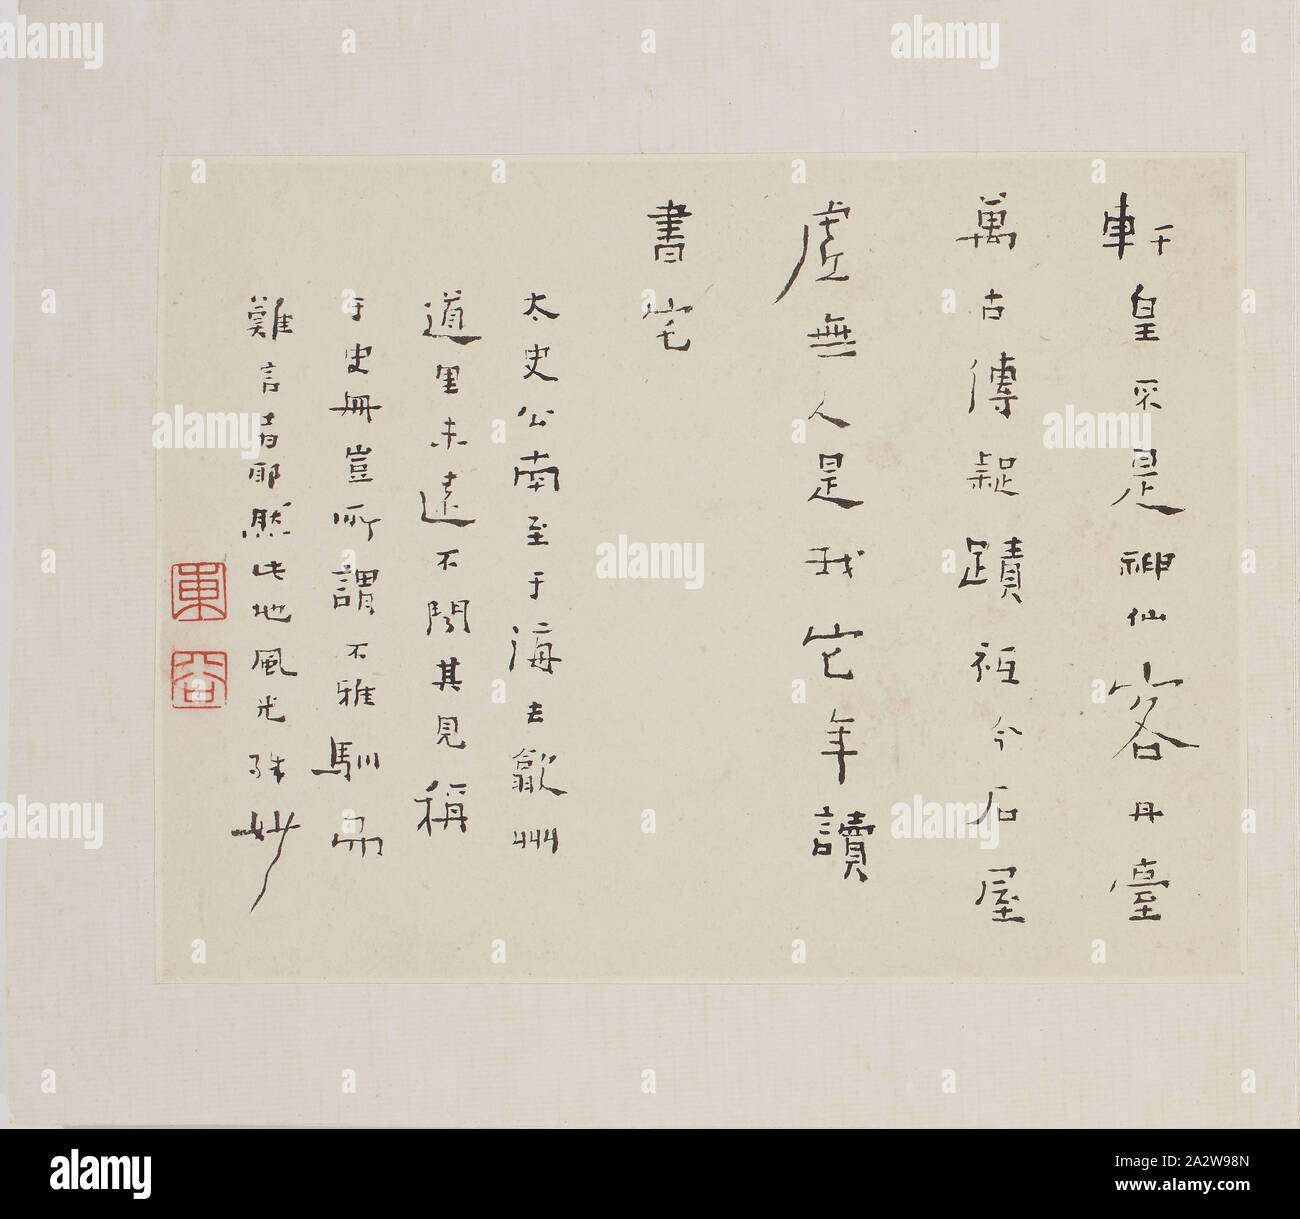 軒皇采是神仙客丹臺
萬古傳疑蹟祗今石屋
虛無人是我它年讀
書宅
太史公南至于海去歙州
道里未遠不聞其見稱
于史冊豈所謂不雅馴而
難言者耶然此地風光殊妙
alamy
Image ID: 2A2W98N
www.alamy.com